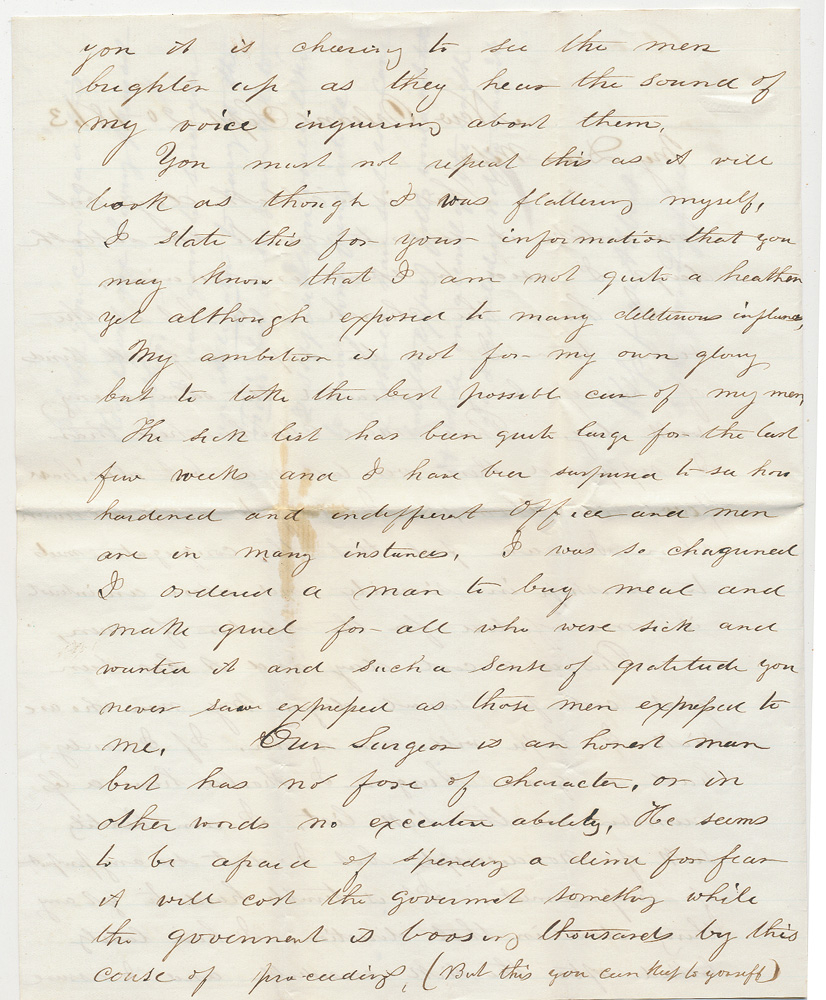 you it is cheering to see the men
brighten up as they hear the sound of
my voice inquiring about them,
You must not repeat this as it will
look as though I was flattering myself,
I state this for your information that you
may know that I am not quite a heathen
yet although exposed to many deleterious influences,
My ambition is not for my own glory
but to take the best possible care of my men,
The sick list has been quite large for the last
few weeks and I have been surprised to see how
hardened and indifferent Office and men
are in many instances, I was so chagrined
I ordered a man to buy meal and
make gruel for all who were sick and
wanted it and such a sense of gratitude you
never saw expressed as those men expressed to
me, Our Surgeon is an honest man
but has no forse of character, or in
other words no executive ability, He seems
to be afraid of spending a dime for fear
it will cost the goverment something while
the government is loosing thousands by this
couse of proceeding, (But this you can keep to yourself)